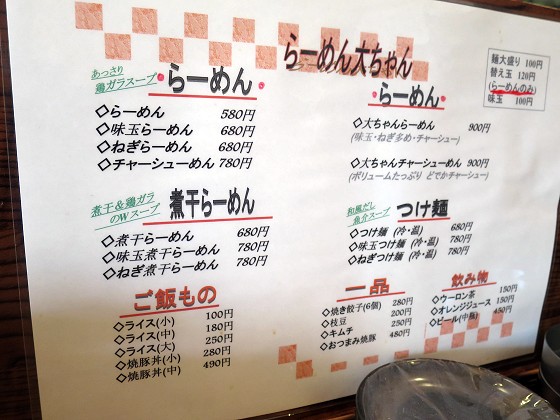 らーめん大ちゃん
麺大盛り 100円
替え玉 120円
(らーめんのみ)
味玉 100円
あっさり
鶏ガラスープ
らーめん
◇らーめん 580円
◇味玉らーめん 680円
◇ねぎらーめん 680円
◇チャーシューめん 780円
らーめん
◇大ちゃんらーめん 900円
(味玉・ねぎ多め・チャーシュー)
◇大ちゃんチャーシューめん 900円
(ボリュームたっぷり どでかチャーシュー)
煮干&鶏ガラ
のWスープ
煮干らーめん
◇煮干らーめん 680円
◇味玉煮干らーめん 780円
◇ねぎ煮干らーめん 780円
和風だし
魚介スープ
つけ麺
◇つけ麺 (冷・温) 680円
◇味玉つけ麺 (冷・温) 780円
◇ねぎつけ麺 (冷・温) 780円
ご飯もの
◇ライス(小) 100円
◇ライス(中) 180円
◇ライス(大) 250円
◇焼豚丼(小) 280円
◇焼豚丼(中) 490円
一品
◇焼き餃子(6個) 280円
◇枝豆 200円
◇キムチ 250円
◇おつまみ焼豚 480円
飲み物
◇ウーロン茶 150円
◇オレンジジュース 150円
◇ビール(中瓶) 450円